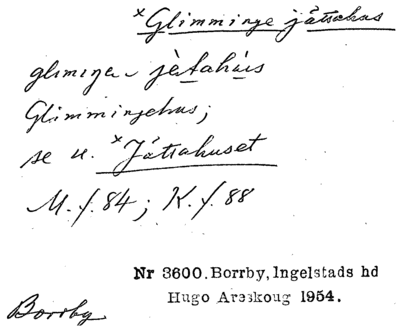 ×Glimminge jättahus
glimiŋa- jätahús
Glimmingehus;
se u. ×Jättahuset
M. f. 84; K. f. 88
Nr 3600. Borrby, Ingelstads hd
Hugo Areskoug 1954.
Borrby